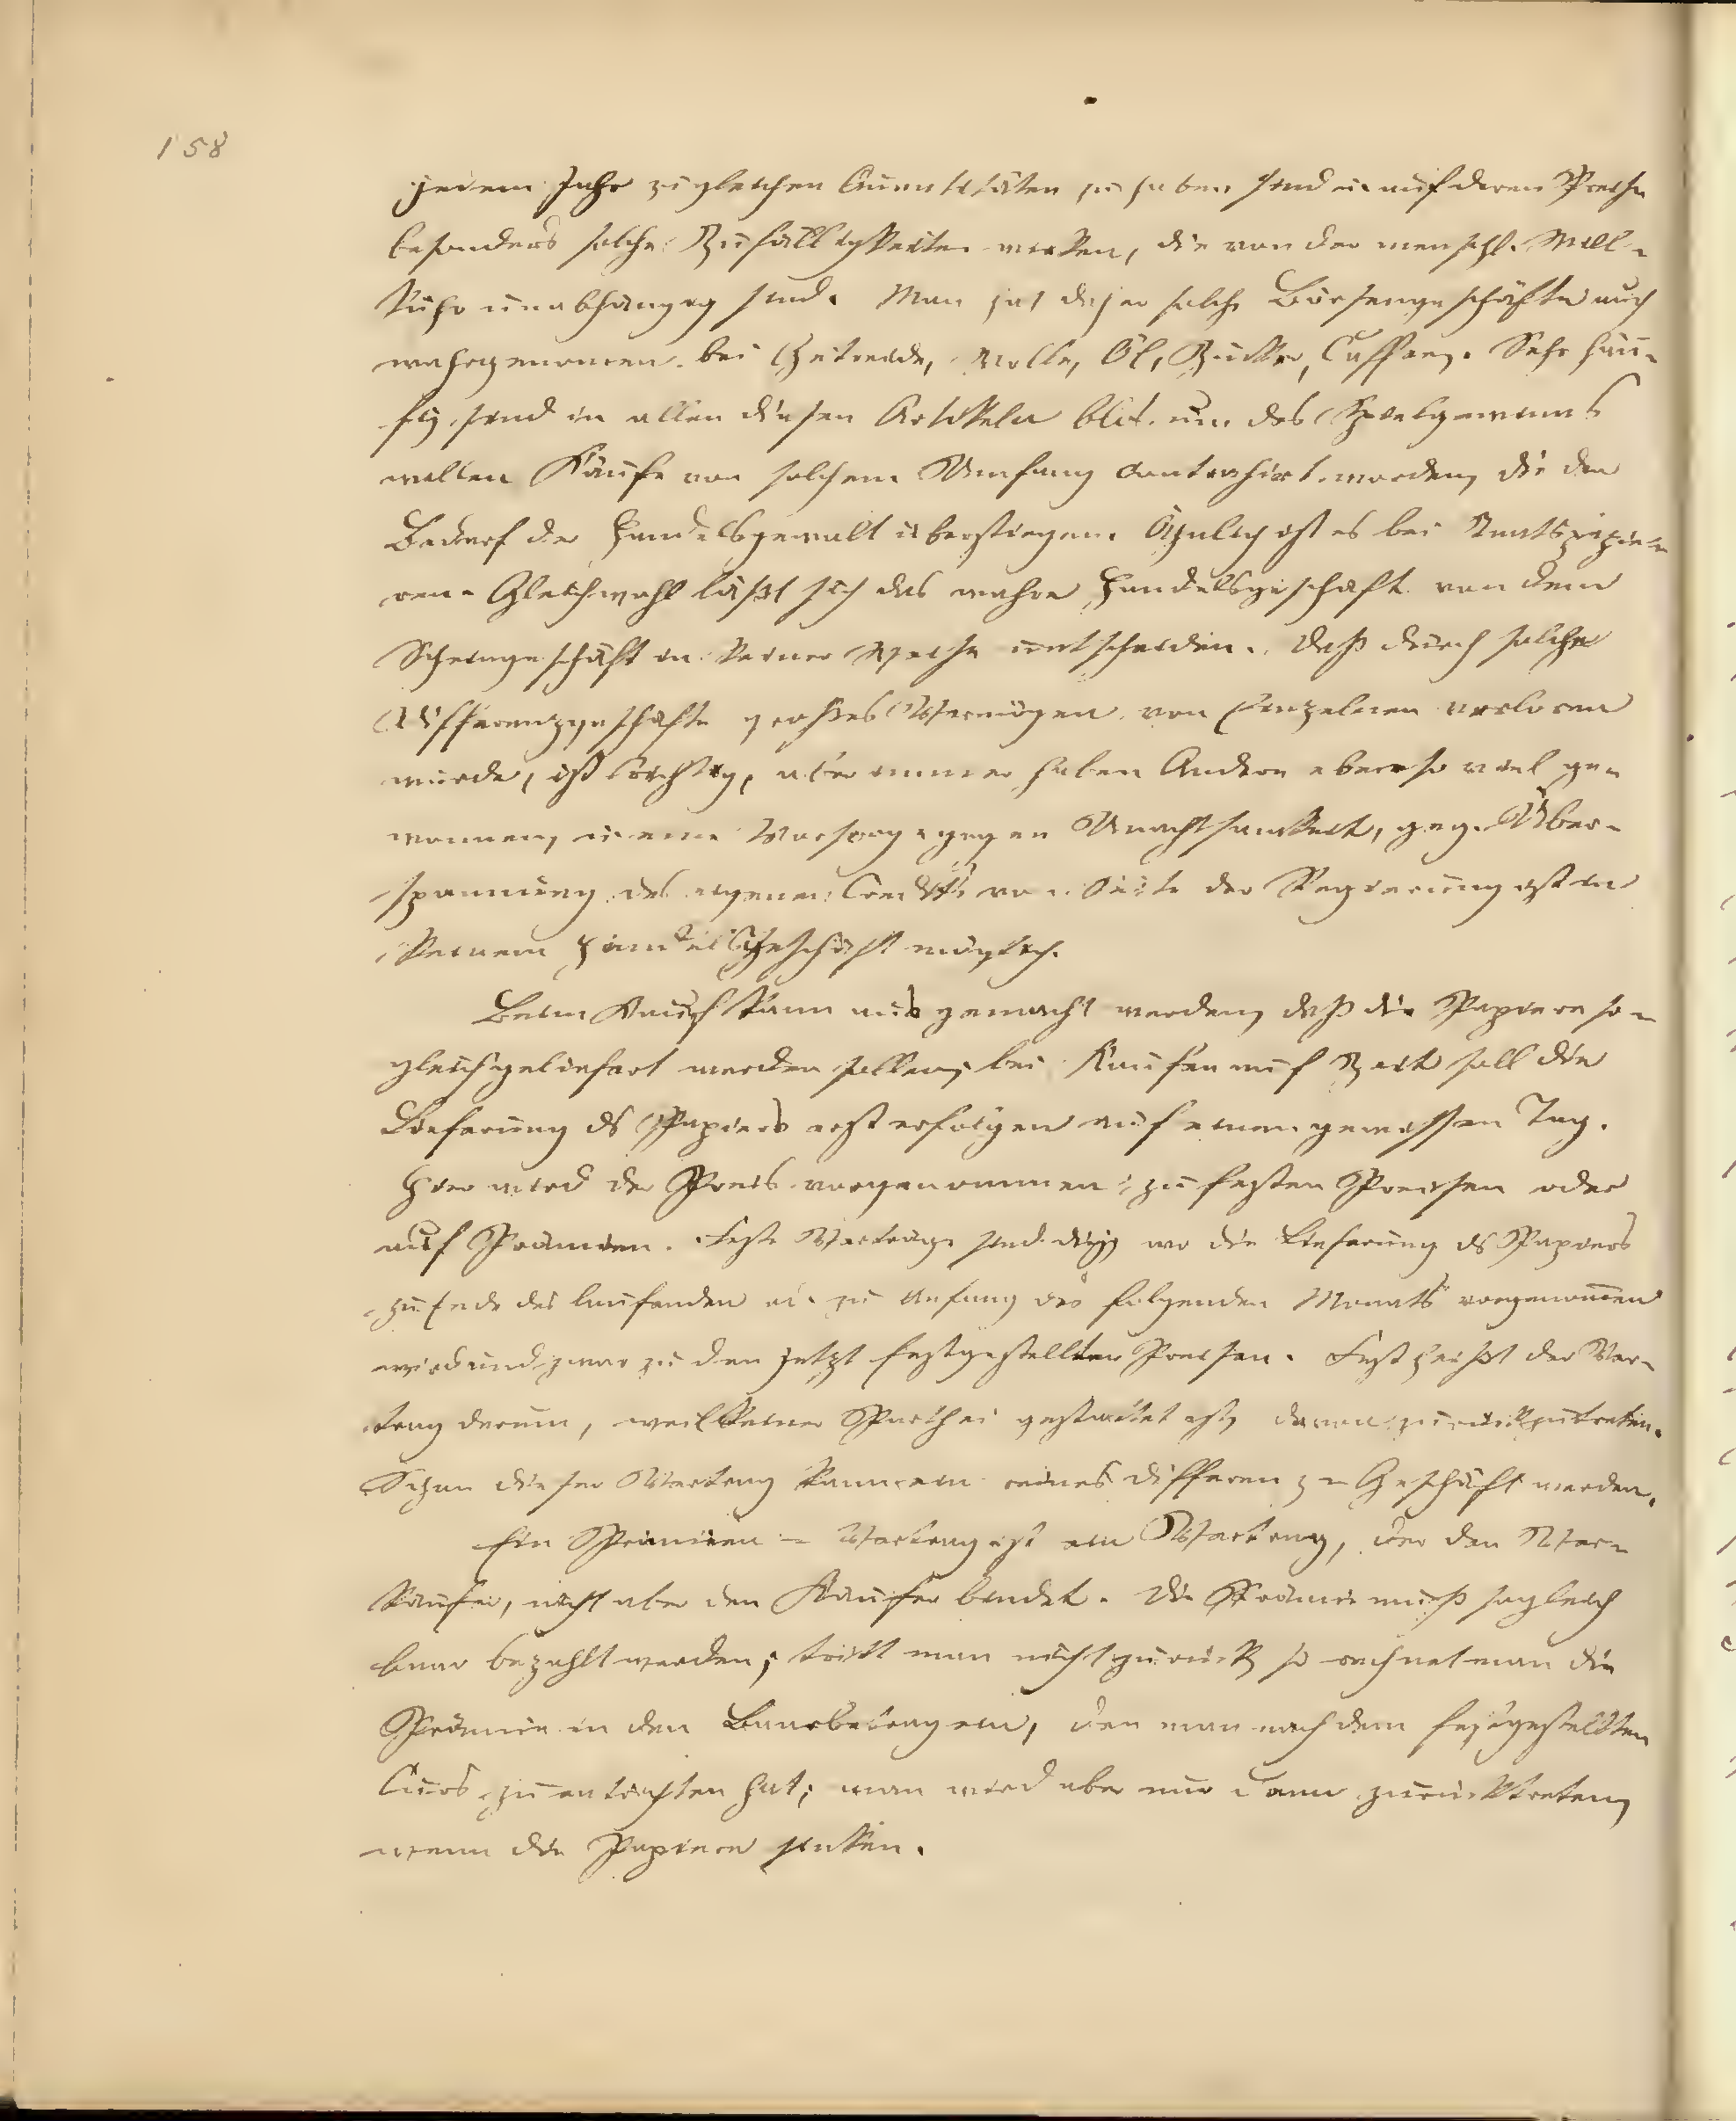 158
jedem Jahr zu gleichen Quantitäten zu haben sind u. auf deren Preise
besonders solche Zufälligkeiten wirken, die von der menschl. Will-
kühr unabhängig sind. Man hat daher solche Börsengeschäfte auch
wahrgenomen bei Getreide, Wolle, Öl, Zucker, Caffee. Sehr häu-
fig sind in allen diesen Artikeln blos um des Spielgewinns
willen Käufe von solchem Umfang contrahirt worden, die den
Bedarf der Handelsgewalt überstiegen. Ähnlich ist es bei Staatspapie-
ren. Gleichwohl läßt sich das wahre Handelsgeschäft von dem
Scheingeschäft in keiner Weise untscheiden. Daß durch solche
Differenzgeschäfte großes Vermögen von Einzelnen verloren
wurde, ist richtig, aber immer haben Andere ebenso viel ge-
wonnen, u. eine Vorsorge gegen Unachtsamkeit, geg. Über-
spannung des eigenen Credits von Seite der Regierung ist in
keinem Handelsgeschäft möglich.
Beim Kauf kann ausgemacht werden, daß die Papiere so-
gleich geliefert werden sollen; bei Kaufen auf Zeit soll die
Lieferung ds Papiers erst erfolgen auf einen gewissen Tag.
Hier wird der Preis vorgenommen: zu festen Preisen oder
auf Prämien. Feste Verträge sind diej. wo die Lieferung ds Papiers
zu Ende des laufenden od. zu Anfang des folgenden Monats vorgenomen
wird und zwar zu den jetzt festgestellten Preisen. Fest heißt der Ver-
trag darum, weil keiner Parthei gestattet ist, davon zurückzutreten.
Schon dieser Vertrag kann ein reines Differenz-Geschäft werden.
Ein Prämien-Vertrag ist ein Vertrag, der den Ver-
käufer, nicht aber den Käufer bindet. Die Prämie muß sogleich
baar bezahlt werden; tritt man nicht zurück so rechnet man die
Prämie in den Baarbetrag ein, den man nach dem festgestellten
Curs zu entrichten hat; man wird aber nur dann zurücktreten,
wenn die Papiere sinken.